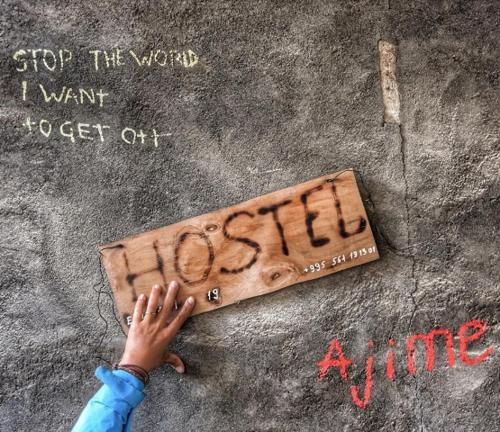 STOP THE WORLD
I WANT
to GET Off
HOSTEL
19
+995 561 1913 01
Ajime